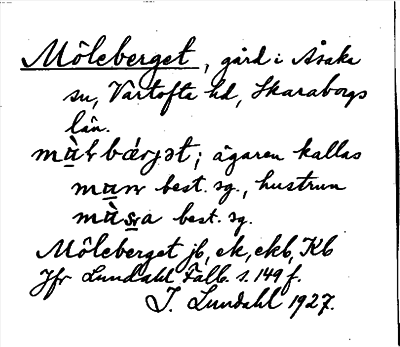 Möleberget, gård i Åsaka
sn, Vartofta hd, Skaraborgs
län.
bǽrjət; ägaren kallas
best. sg., hustrun
best. sg.
Möleberget jb, ek, ekb, Kb
Jfr Lundahl Falb. s. 149 f.
I. Lundahl 1927.